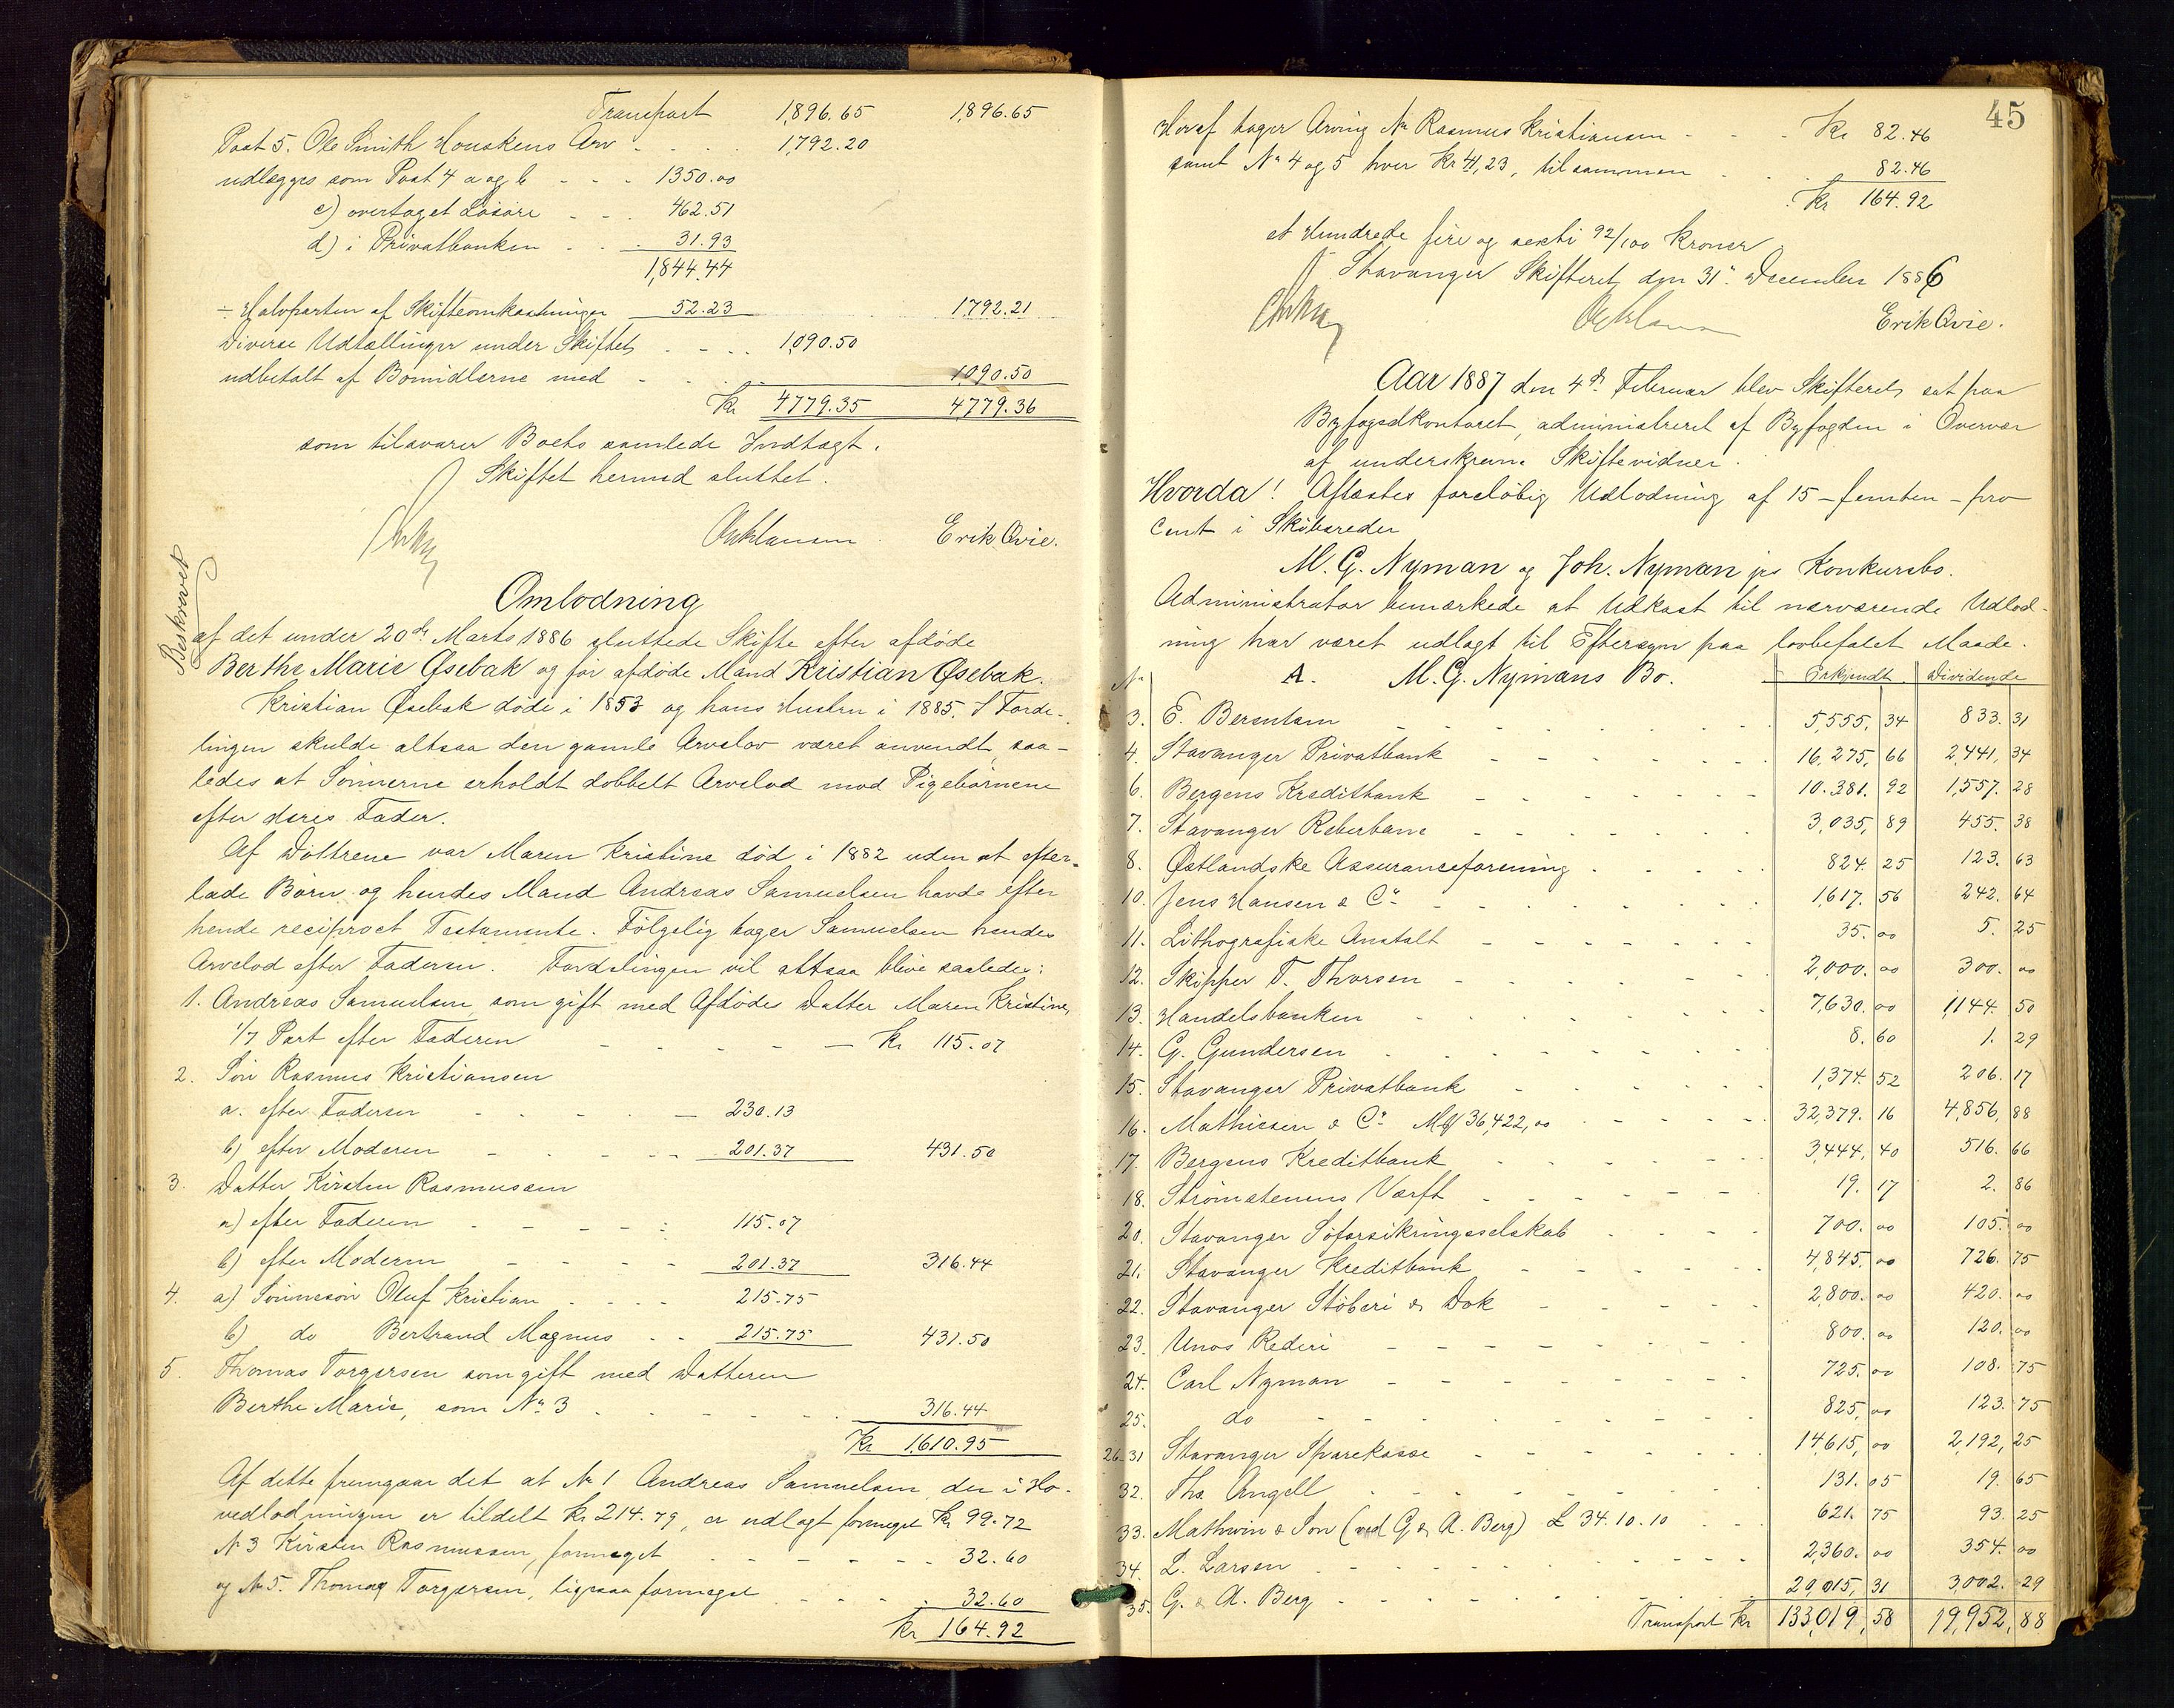 Transport 1,896.65 1,896.65
Post 5. Ole Smith Houskens Arv - - - 1,792.20
udlægges som Post 4 a og b - - - 1350.00
c) overtaget Løsøre - - - 462.51
d) i Privatbanken - - - 31.93
1,844.44
÷ Halvparten af Skifteomkostninger 52.23 1,792.21
Diverse Udtællinger under Skiftet - - - 1,090.50
udbetalt af Bomidlerne med - - - 1,090.50
Kr 4,779.35 4,779.36
som tilsvarer Boets samlede Indtægt.
Skiftet hermed sluttet.
Erik Qvie.
Beskrevet
Omlodning
af det under 20de Marts 1886 sluttede Skifte efter afdøde
Berthe Marie Øsebak og før afdøde Mand Kristian Øsebak.
Kristian Øsebak døde i 1853 og hans Hustru i 1885. I Forde-
lingen skulde altsaa den gamle Arvelov været anvendt saa-
ledes at Sønnerne erholdt dobbelt Arvelod mod Pigebørnene
efter deres Fader.
Af Døttrene var Maren Kristine død i 1882 uden at efter-
lade Børn og hendes Mand Andreas Samuelsen havde efter
hende reciproct Testamente. Følgelig tager Samuelsen hendes
Arvelod efter Faderen. Fordelingen vil altsaa blive saaledes:
1. Andreas Samuelsen som gift med Afdødes Datter Maren Kristine,
1/7 Part efter Faderen - - - Kr 115.07
2. Søn Rasmus Kristiansen
a. efter Faderen - - - 230.13
b) efter Moderen - - - 201.37 431.50
3. Datter Kirsten Rasmussen
a) efter Faderen - - - 115.07
b) efter Moderen - - - 201.37 316.44
4. a) Sønnesøn Oluf Kristian - - - 215.75
b) do Bertrand Magnus - - 215.75 431.50
5. Thomas Torgersen som gift med Datteren
Berthe Marie, som No 3 - - - 316.44
Kr 1,610.95
Af dette fremgaar det at No 1 Andreas Samuelsen, der i Ho-
vedlodningen er tildelt Kr 214.79, er udlagt formeget Kr 99.72
No 3 Kirsten Rasmussen, formeget - - - 32.60
og No 5. Thomas Torgersen, ligesaa formeget - - - 32.60
Kr 164.92
45
Heraf tager Arving No 2 Rasmus Kristiansen - - - Kr 82.46
samt No 4 og 5 hver Kr 41,23, tilsammen - - - 82.46
Kr 164.92
et Hundrede fire og sexti 92/100 Kroner
Stavanger Skifteret den 31. December 1886
Erik Qvie.
Aar 1887 den 4de Februar blev Skifteret sat paa
Byfogedkontoret, administreret af Byfogden i Overvær
af underskrevne Skiftevidner.
Hvorda! Aflæstes foreløbig Udlodning af 15 - femten - pro
Cent i Skibsreder
M. G. Nyman og Joh. Nyman jrs Konkursbo.
Administrator bemærkede at Udkast til nærværende Udlod-
ning har været udlagt til Eftersyn paa lovbefalet Maade.
No A. M. G. Nymans Bo. Erkjendt Dividende
3. E. Berentsen 5,555, 34 833. 31
4. Stavanger Privatbank 16,275, 66 2,441, 34
6. Bergens Kreditbank 10.381. 92 1,557. 28
7. Stavanger Reberbane 3,035, 89 455. 38
8. Østlandske Assuranceforening 824. 25 123. 63
10. Jens Hansen & Co 1,617. 56 242. 64
11. Lithografiske Anstalt 35. 00 5. 25
12. Skipper T. Thorsen 2,000. 00 300. 00
13. Handelsbanken 7,630. 00 1,144. 50
14. G. Gundersen 8. 60 1. 29
15. Stavanger Privatbank 1,374. 52 206. 17
16. Mathiesen & Co Mk 36,422,00 32,379. 16 4,856, 88
17. Bergens Kreditbank 3,444, 40 516. 66
18. Strømstenens Værft 19. 17 2. 86
20. Stavanger Søforsikringsselskab 700. 00 105. 00
21. Stavanger Kreditbank 4,845. 00 726. 75
22. Stavanger Støberi & Dok 2,800. 00 420. 00
23. Unos Rederi 800. 00 120. 00
24. Carl Nyman 725. 00 108. 75
25. do 825, 00 123. 75
26-31 Stavanger Sparekasse 14,615, 00 2,192, 25
32. Ths. Angell 131. 05 19. 65
33. Mathwin & Son (ved G. & A. Berg) £ 34.10.10 621. 75 93. 25
34. L. Larsen 2,360. 00 354. 00
35. G. & A. Berg 20,015, 31 3,002. 29
Transport Kr 133,019, 58 19,952, 88